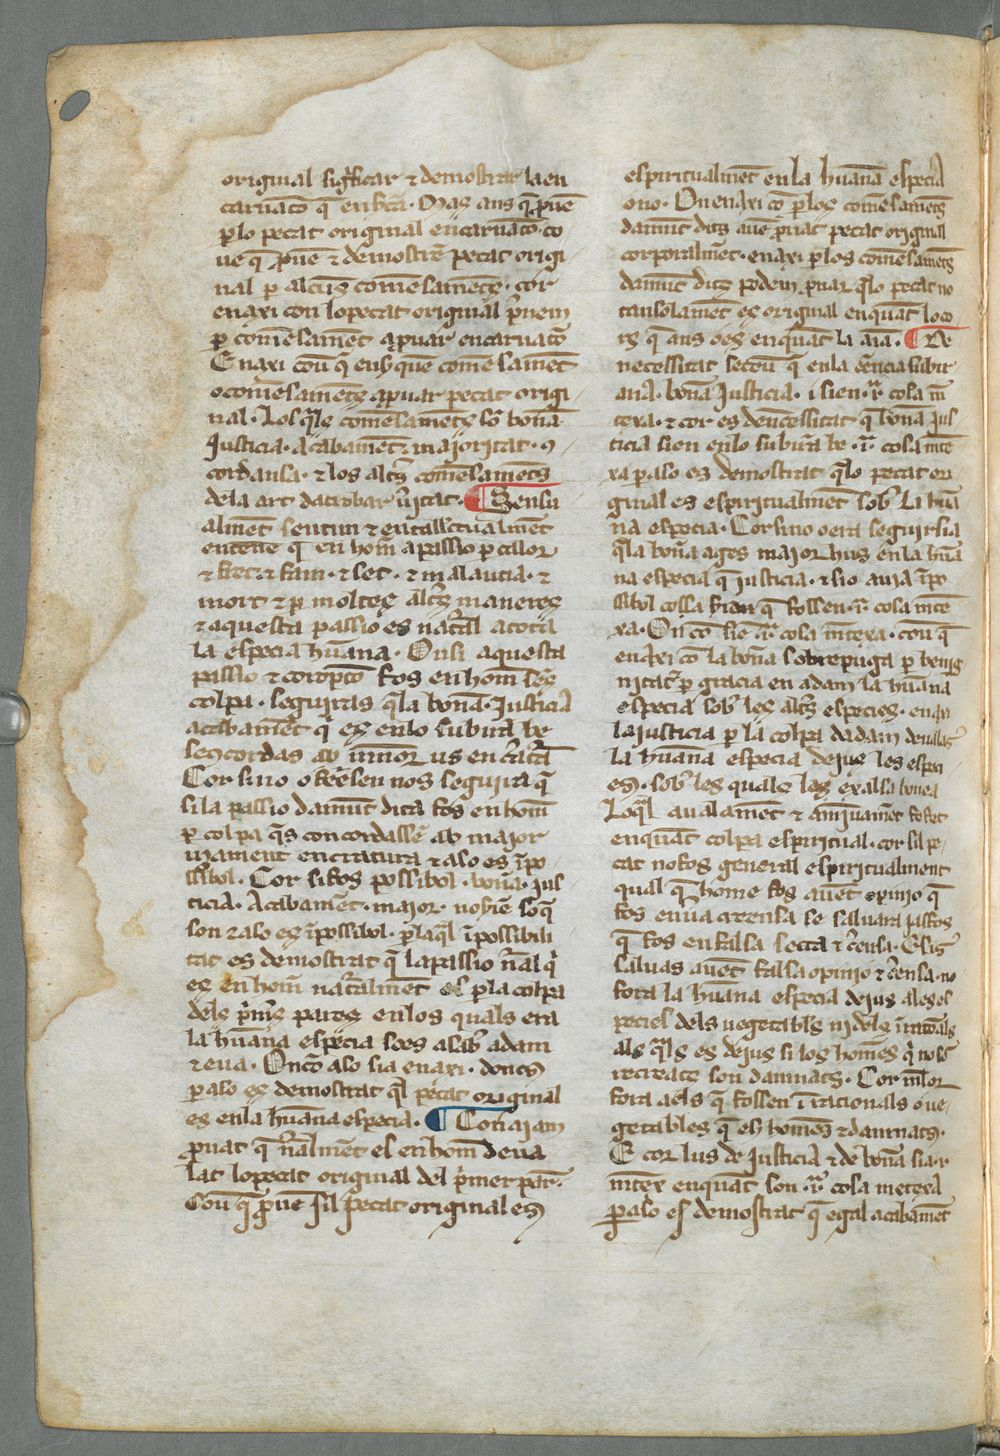 original sigficar ⁊ demostrar la en
carnacō q̄ en b̄ca. Mas ans q̄ pue
per lo pecat original encarnacō. co
ue q̄ pue ⁊ demostrē pecat origi
nal p alcuns comēsamēts. cor
enaxi con lo pecat original puem
p comēsament apuar encarnacō
Enaxi coū q̄ enseque comēsament
o comēsamēts apuar pecat origi
nal. Los q̄ls comēsamēts sō bonā
Justicia. Acabamēt. maioritat. ⁊
cordansa. ⁊ los altrs comēsamēts
de la art datrobar ūitat. ¶ Sensu
almēt sentim ⁊ entellectualmēt
entenē q̄ en hom a passio p calor
⁊ fret ⁊ fam. ⁊ set. ⁊ malautia. ⁊
mort ⁊ p moltes altrs maneres
⁊ aquesta passio es natral a tota
la especia humana. On si aquesta
passio ⁊ corōpcō fos en hom sēs
colpa. seguiras q̄ la bonā. Justicia
acabamēt q̄ es en lo subira be
sencordas ab menor us en crātā
Cor si no o feēssen nos seguira q̄
si la passio damūt dita fos en hom
p colpa q̄s concordassē ab major
uzament en creatura ⁊ aso es īpo
ssibol. Cor si fos possibol. bonā. Jus
ticia. Acabamēt. major. no sie soq̄
son ⁊ aso es īpossibol. p la q̄l īpossibili
tat es demostrat q̄ la passio nāl q̄
es en hom natralmēt es p la colpa
dels prīms pares en los quals era
la humana especia so es asab adam
⁊ eua. On cō aso sia enaxi. doncs
p aso es demostrat q̄l pecat original
es en la humana especia. ¶ Con ajam
prouat q̄ nālmēt es en hom deua
lat lo pecat original del primer pare.
Coū q̄ puē si l pecat original es
espiritualmēt en la humana especia
o no. On enaxi cō p los comēsamēts
damūt dits auē puat pecat original
corporalmēt. enaxi p los comēsamēts
damūt dits podem puar q̄ lo pecat no
tansolamēt es original en quāt lo co
rs q̄ ans o es en quāt la aīa. ¶ De
necessitat secōu q̄ en la esencia subir
ana. bonā Justicia. i sien .ia. cosa m
texa. ⁊ cor es de necessitat q̄ bonā Jus
ticia sien en lo subira be .ia. cosa mte
xa p aso es demostrat q̄ lo pecat ori
ginal es espiritualmēt sob la huā
na especia. Cor si no o era seguir sia
q̄ la bonā ages major hus en la huā
na especia q̄ justicia. ⁊ si o auia īpo
ssibol cossa fora q̄ fossen .ia. cosa mte
xa. On cō sie .ia. cosa mtexa. coū q̄
enaxi cō la bonā sobrepuga p benig
nitat ⁊ p gracia en adam la humana
especia sob les altrs especies. enaxi
la justicia p la colpa dadam deualas
la humana especia dejus les espe
es. sob les quals les exalsa bonea
Lo q̄l aualamēt ⁊ amjuamēt fo fet
en quāt colpa espiritual. cor si l pe
cat no fos general espiritualment
qual q̄ home fos auēt opinio q̄
fos en uia creensa se saluara jas fos
q̄ fos en falsa secta ⁊ creensa. E si s
saluas auēt falsa opinio ⁊ creensa. no
fora la humana especia dejus a les es
pecies dels uegetabls ni dels irracionals
als q̄ls es dejus si los homes q̄ no s
recreats son dampnats. Cor mellor
fora a els q̄ fossen irracionals o ue
getables q̄ es homes ⁊ dampnats.
E cor lus de justicia ⁊ de bonā sia .i.
mtex en quāt son .ia. cosa metexa
p aso es demostrat q̄ egal acabamēt